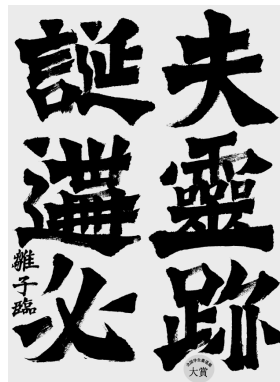 夫靈跡
誕遘必
雛子臨
大賞